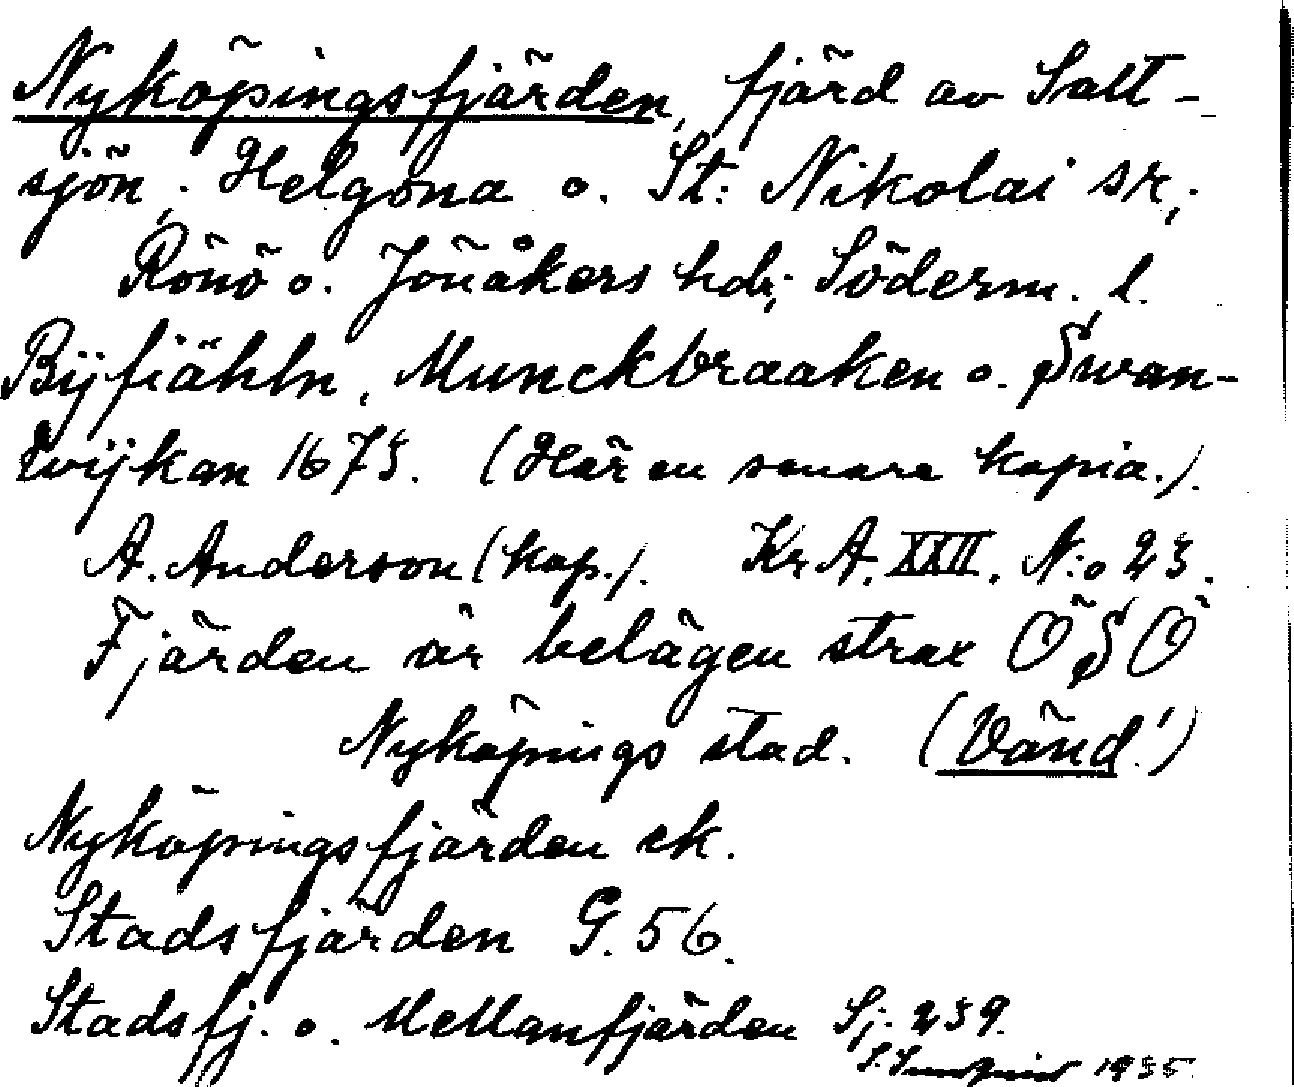 Nyköpingsfjärden, fjärd av Salt-
sjön; Helgona o. St: Nikolai sr;
Rönö o. Jönåkers hdr; Söderm. l.
Bijfiähln, Munckbraaken o. Swan-
Ewijkan 1673. (Här en senare kopia.).
A. Anderson (kop.). Kr. A. XXII. N:o 23.
Fjärden är belägen strax ÖSÖ
Nyköpings stad. (Vänd!)
Nyköpingsfjärden ek.
Stadsfjärden G. 56.
Stadsfj. o. Mellanfjärden Sj. 239.
1935